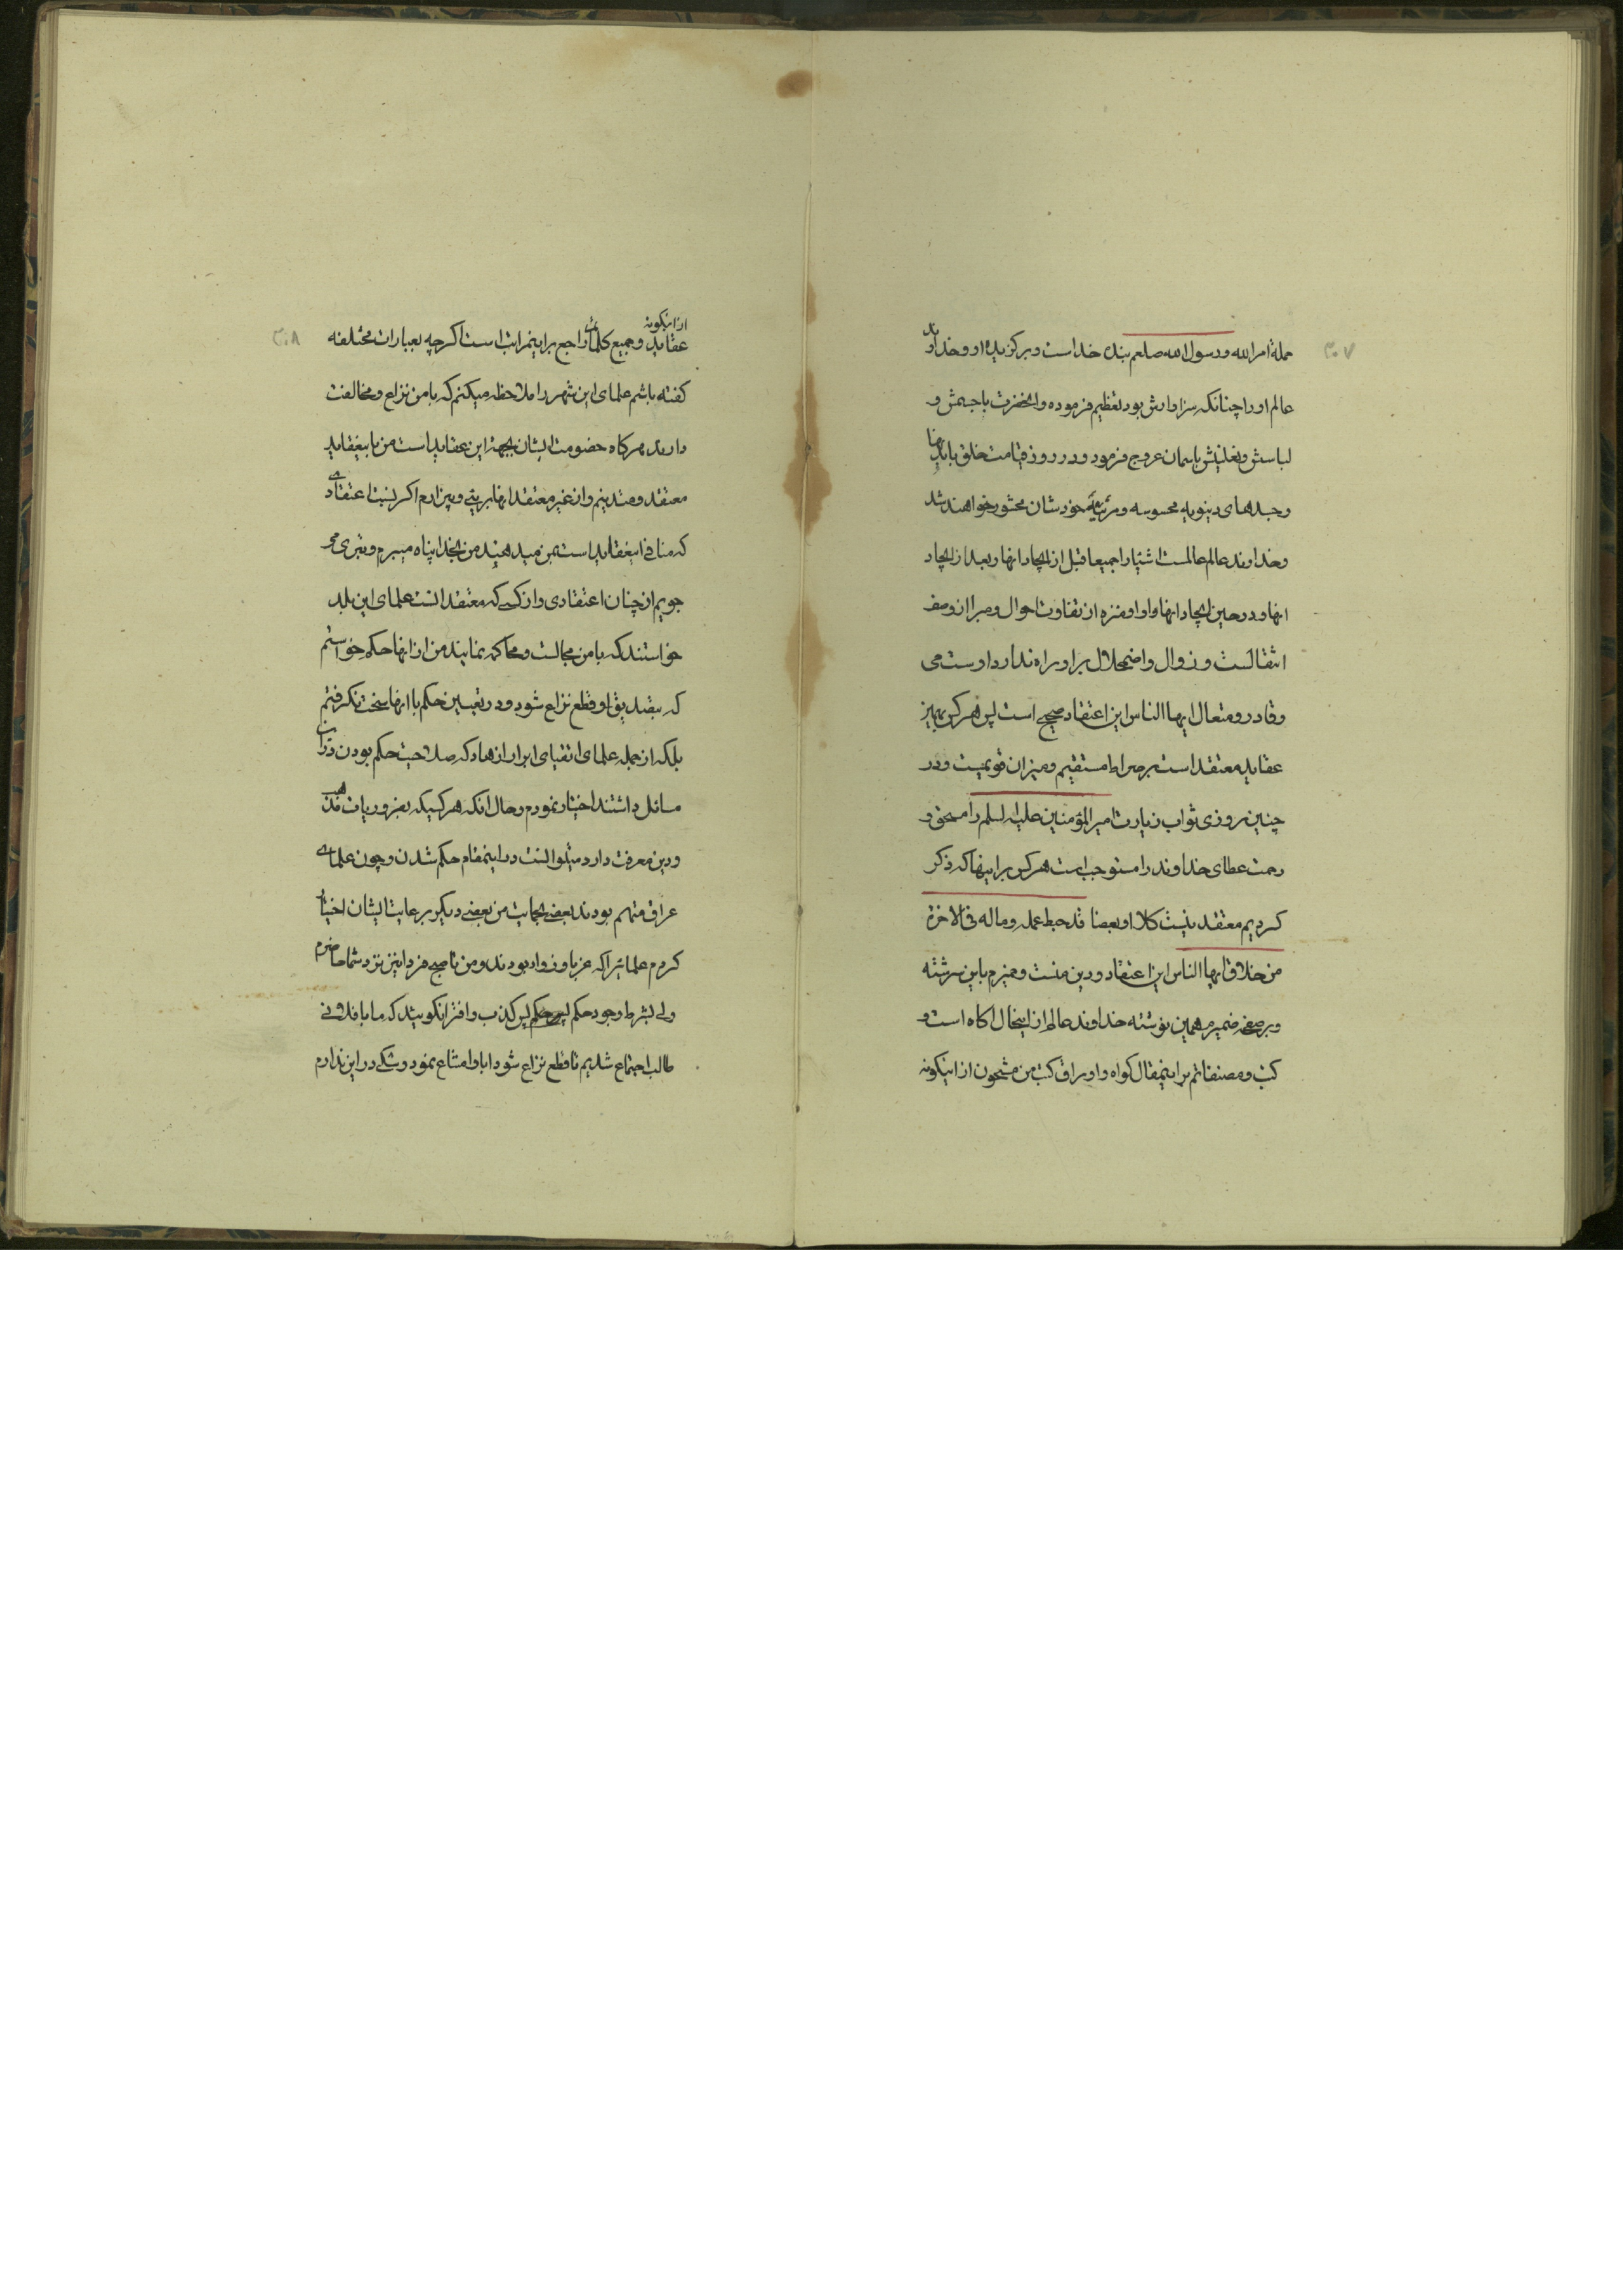 ۳۰۷
حملة امر الله ورسول الله صلعم بنده خداست وبرکزیده او وخداوند
عالم اورا چنانکه سزاوارش بود تعظیم فرموده وانحضرت باجسمش و
لباسش ونعلینش باسمان عروج فرمود ودر روز قیامت خلق بابدنها
وجسدهای دنیویه محسوسه ومرئیه خودشان محشور خواهند شد
وخداوند عالم عالمست اشیارا جمیعا قبل از ایجاد انها وبعد از ایجاد
انها ودر حین ایجاد انها واو منزه از تفاوت احوال ومبرا از وصف
انتقالست وزوال واضمحلال براو راه ندارد اوست حی
وقادر ومتعال ایها الناس این اعتقاد صحیح است پس هرکس بهمین
عقاید معتقد است بر صراط مستقیم ومیزان قویمیست ودر
چنین روزی ثواب زیارت امیر المؤمنین علیه السلم را مستحق و
رحمت عطای خداوند را مستوجب است هرکس براینها که ذکر
کردیم معتقد نیست کلا او بعضا قد حبط عمله وماله فی الاخرة
من خلاق ایها الناس این اعتقاد ودین منست وضمیرم باین سرشته
وبر صفحه ضمیرم همین نوشته خداوند عالم از اینحال اکاه است و
کتب ومصنفاتم براینمقال کواه واوراق کتب من مشحون از اینکونه
۳۰۸
از اینکونه
عقاید وجمیع کلماتی راجع براینمراتب است اکرچه بعبارات مختلفه
کفته باشم علمای این شهر را ملاحظه میکنم که بامن نزاع ومخالفت
دارند هرکاه خصومت ایشان بجهة این عقاید است من باینعقاید
معتقد ومتدینم واز غیر معتقد انها بریئی وبیزارم اکر نسبت اعتقادی
که منافی اینعقاید است بمن میدهند من بخدا پناه میبرم وتبری می
جویم از چنان اعتقادی واز کسی که معتقد انست علمای این بلد
خواستند که بامن مجالست ومحاکمه نمایند من از انها حکم خواستم
که بتصدیق او قطع نزاع شود ودر تعیین حکم با انها سخت نکرفتم
بلکه از جمله علمای اتقیای ابرار ازهاد که صلاحیت حکم بودن دراین
مسائل داشتند اختیار نمودم وحال انکه هرکسیکه بضروریات مذهب
ودین معرفت دارد میتوانست دراینمقام حکم شدن وچون علمای
عراق متهم بودند بعضی بحمایت من بعضی دیکر برعایت ایشان اختیار
کردم علمائیرا که غربا وزوار بودند ومن ناصح فردا نیز نزد شما حاضرم
ولی بشرط وجود حکم پس کذب وافترا نکویند که ما با فلانی
طالب اجتماع شدیم تا قطع نزاع شود ابا وامتناع نمود وشکی در این ندارم